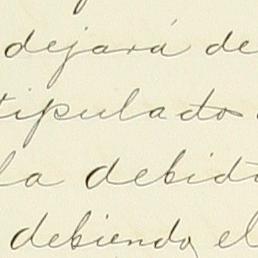 dejará de
tipulado
la debid
debiendo, el